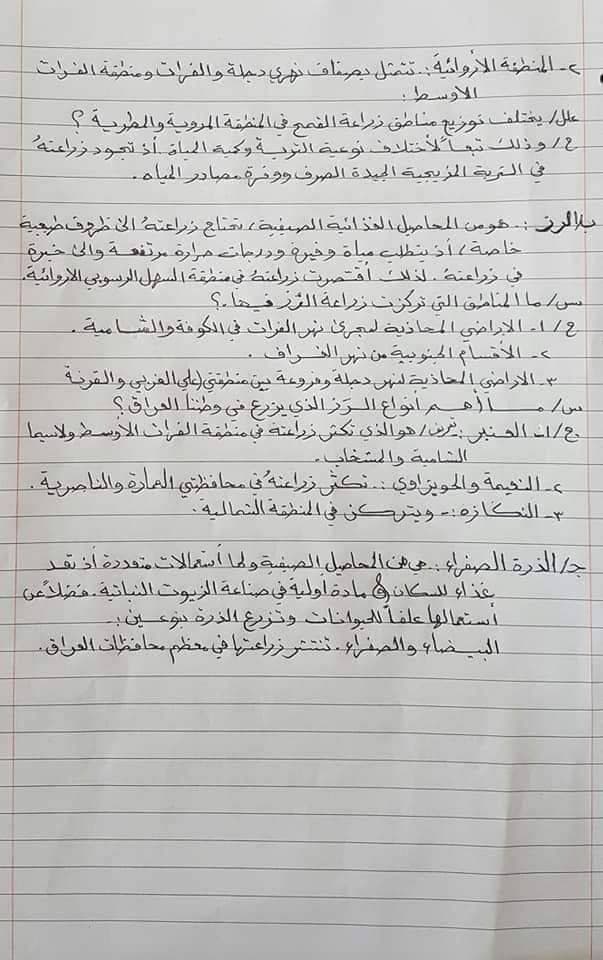 ٢- المنطقة الأروائية :. تتمثل بضفاف نهري دجلة والفرات ومنطقة الفرات
الاوسط :
علل/ يختلف توزيع مناطق زراعة القمح في المنطقة المروية والمطرية ؟
ج/ وذلك تبعاً لأختلاف نوعية التربة وكمية المياة أذ تجود زراعتهُ
في التربة المزيجية الجيدة الصرف ووفرة مصادر المياه.
ب/ الرز :. هو من المحاصيل الغذائية الصيفية ، تحتاج زراعتهُ الى ظروف طبيعية
خاصة ، أذ يتطلب مياة وفيرة ودرجات حرارة مرتفعة والى خبرة
في زراعتهُ . لذلك أقتصرت زراعتهُ في منطقة السهل الرسوبي الاروائية.
س/ ما المناطق التي تركزت زراعة الرز فيها .؟
ج/ ١- الاراضي المحاذية لمجرى نهر الفرات في الكوفة والشامية .
٢- الأقسام الجنوبية من نهر الغراف .
٣- الاراضي المحاذية لنهر دجلة وفروعة بين منطقتي (علي الغربي والقرنة
س/ مــا أهم أنواع الرز الذي يزرع في وطننا العراق ؟
ج/ ١- العنبر : هو الذي تكثر زراعته في منطقة الفرات الأوسط ولاسيما
الشامية والمشخاب .
٢- النعيمة والحويزاوي :. تكثر زراعتهُ في محافظتي العمارة والناصرية .
٣- النكازه :- ويتركز في المنطقة الشمالية .
ج/ الذرة الصفراء :. هي من المحاصيل الصيفية ولها أستعمالات متعددة أذ تعد
غذاء للسكان و مادة اولية في صناعة الزيوت النباتية . فضلاً عن
أستعمالها علفاً للحيوانات وتزرع الذرة بنوعين :-
البيضاء والصفراء . تنتشر زراعتها في معظم محافظات العراق .